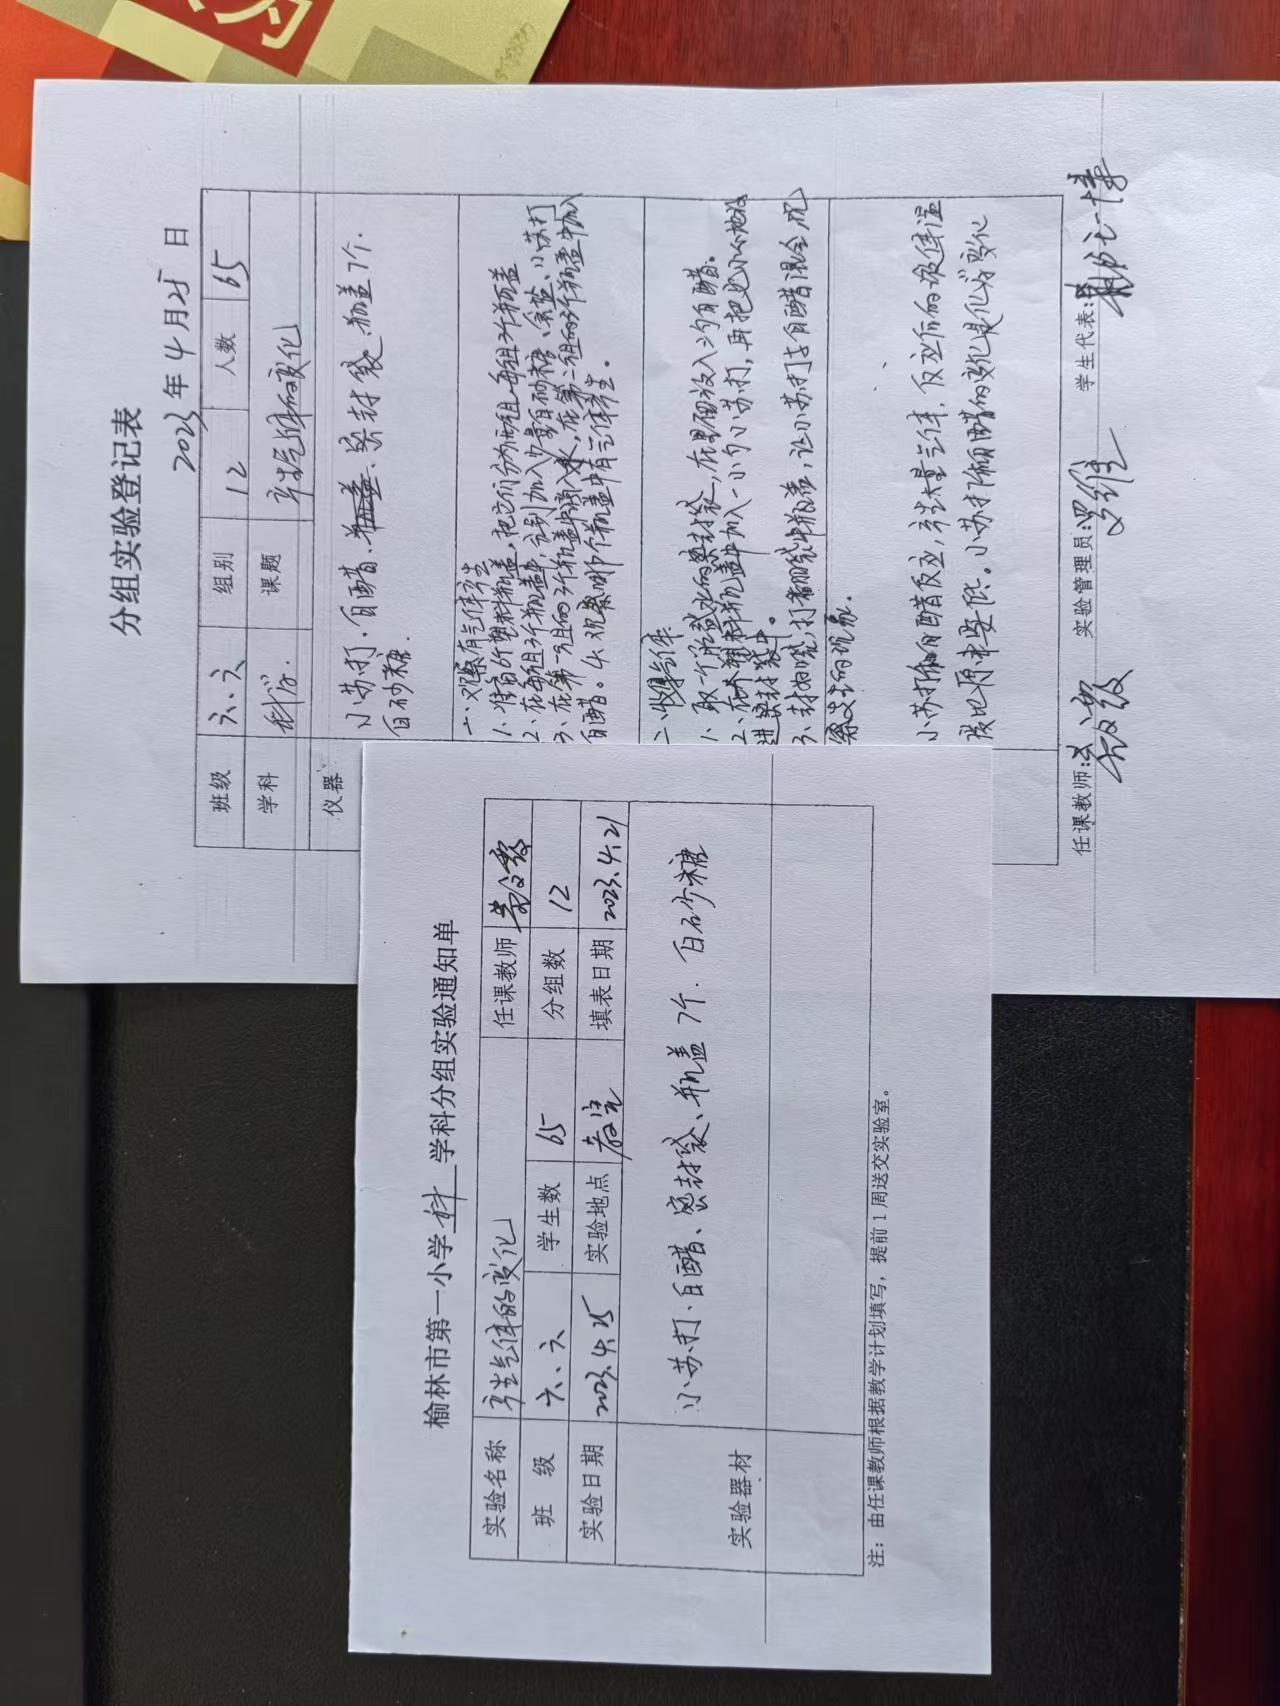 分组实验登记表
2023年4月25日
班级 六、六 组别 12 人数 65
学科 科学. 课题 产生气体的变化
仪器 小苏打.白醋.密封袋.瓶盖7个.
白砂糖
一、观察有气体产生
1、准备6个塑料瓶盖,把它们分为两组,每组3个瓶盖
2、在每组3个瓶盖中,分别加入少量白砂糖、食盐、小苏打
3、在第一组的3个瓶盖中滴入水,在第二组的3个瓶盖中加入
白醋。4、观察哪个瓶盖中有气体产生。
二、收集气体
1、取一个能盛水的密封袋,在里面放入2勺白醋。
2、在个塑料瓶盖中加入一小勺小苏打,再把它小心地放
进密封袋中。
3、封好口袋,打翻袋中瓶盖,让小苏打与白醋混合,观
察发生的现象.
小苏打和白醋反应,产生大量气体,反应后的液体温
度比原来要低。小苏打和白醋的变化是化学变化
任课教师: 实验管理员:罗维 学生代表:
榆林市第一小学 科 学科分组实验通知单
实验名称 产生气体的变化 任课教师
班 级 六、六 学生数 65 分组数 12
实验日期 2023.4.25 实验地点 教室 填表日期 2023.4.21
实验器材 小苏打.白醋、密封袋、瓶盖7个.白砂糖
注:由任课教师根据教学计划填写,提前1周送交实验室。